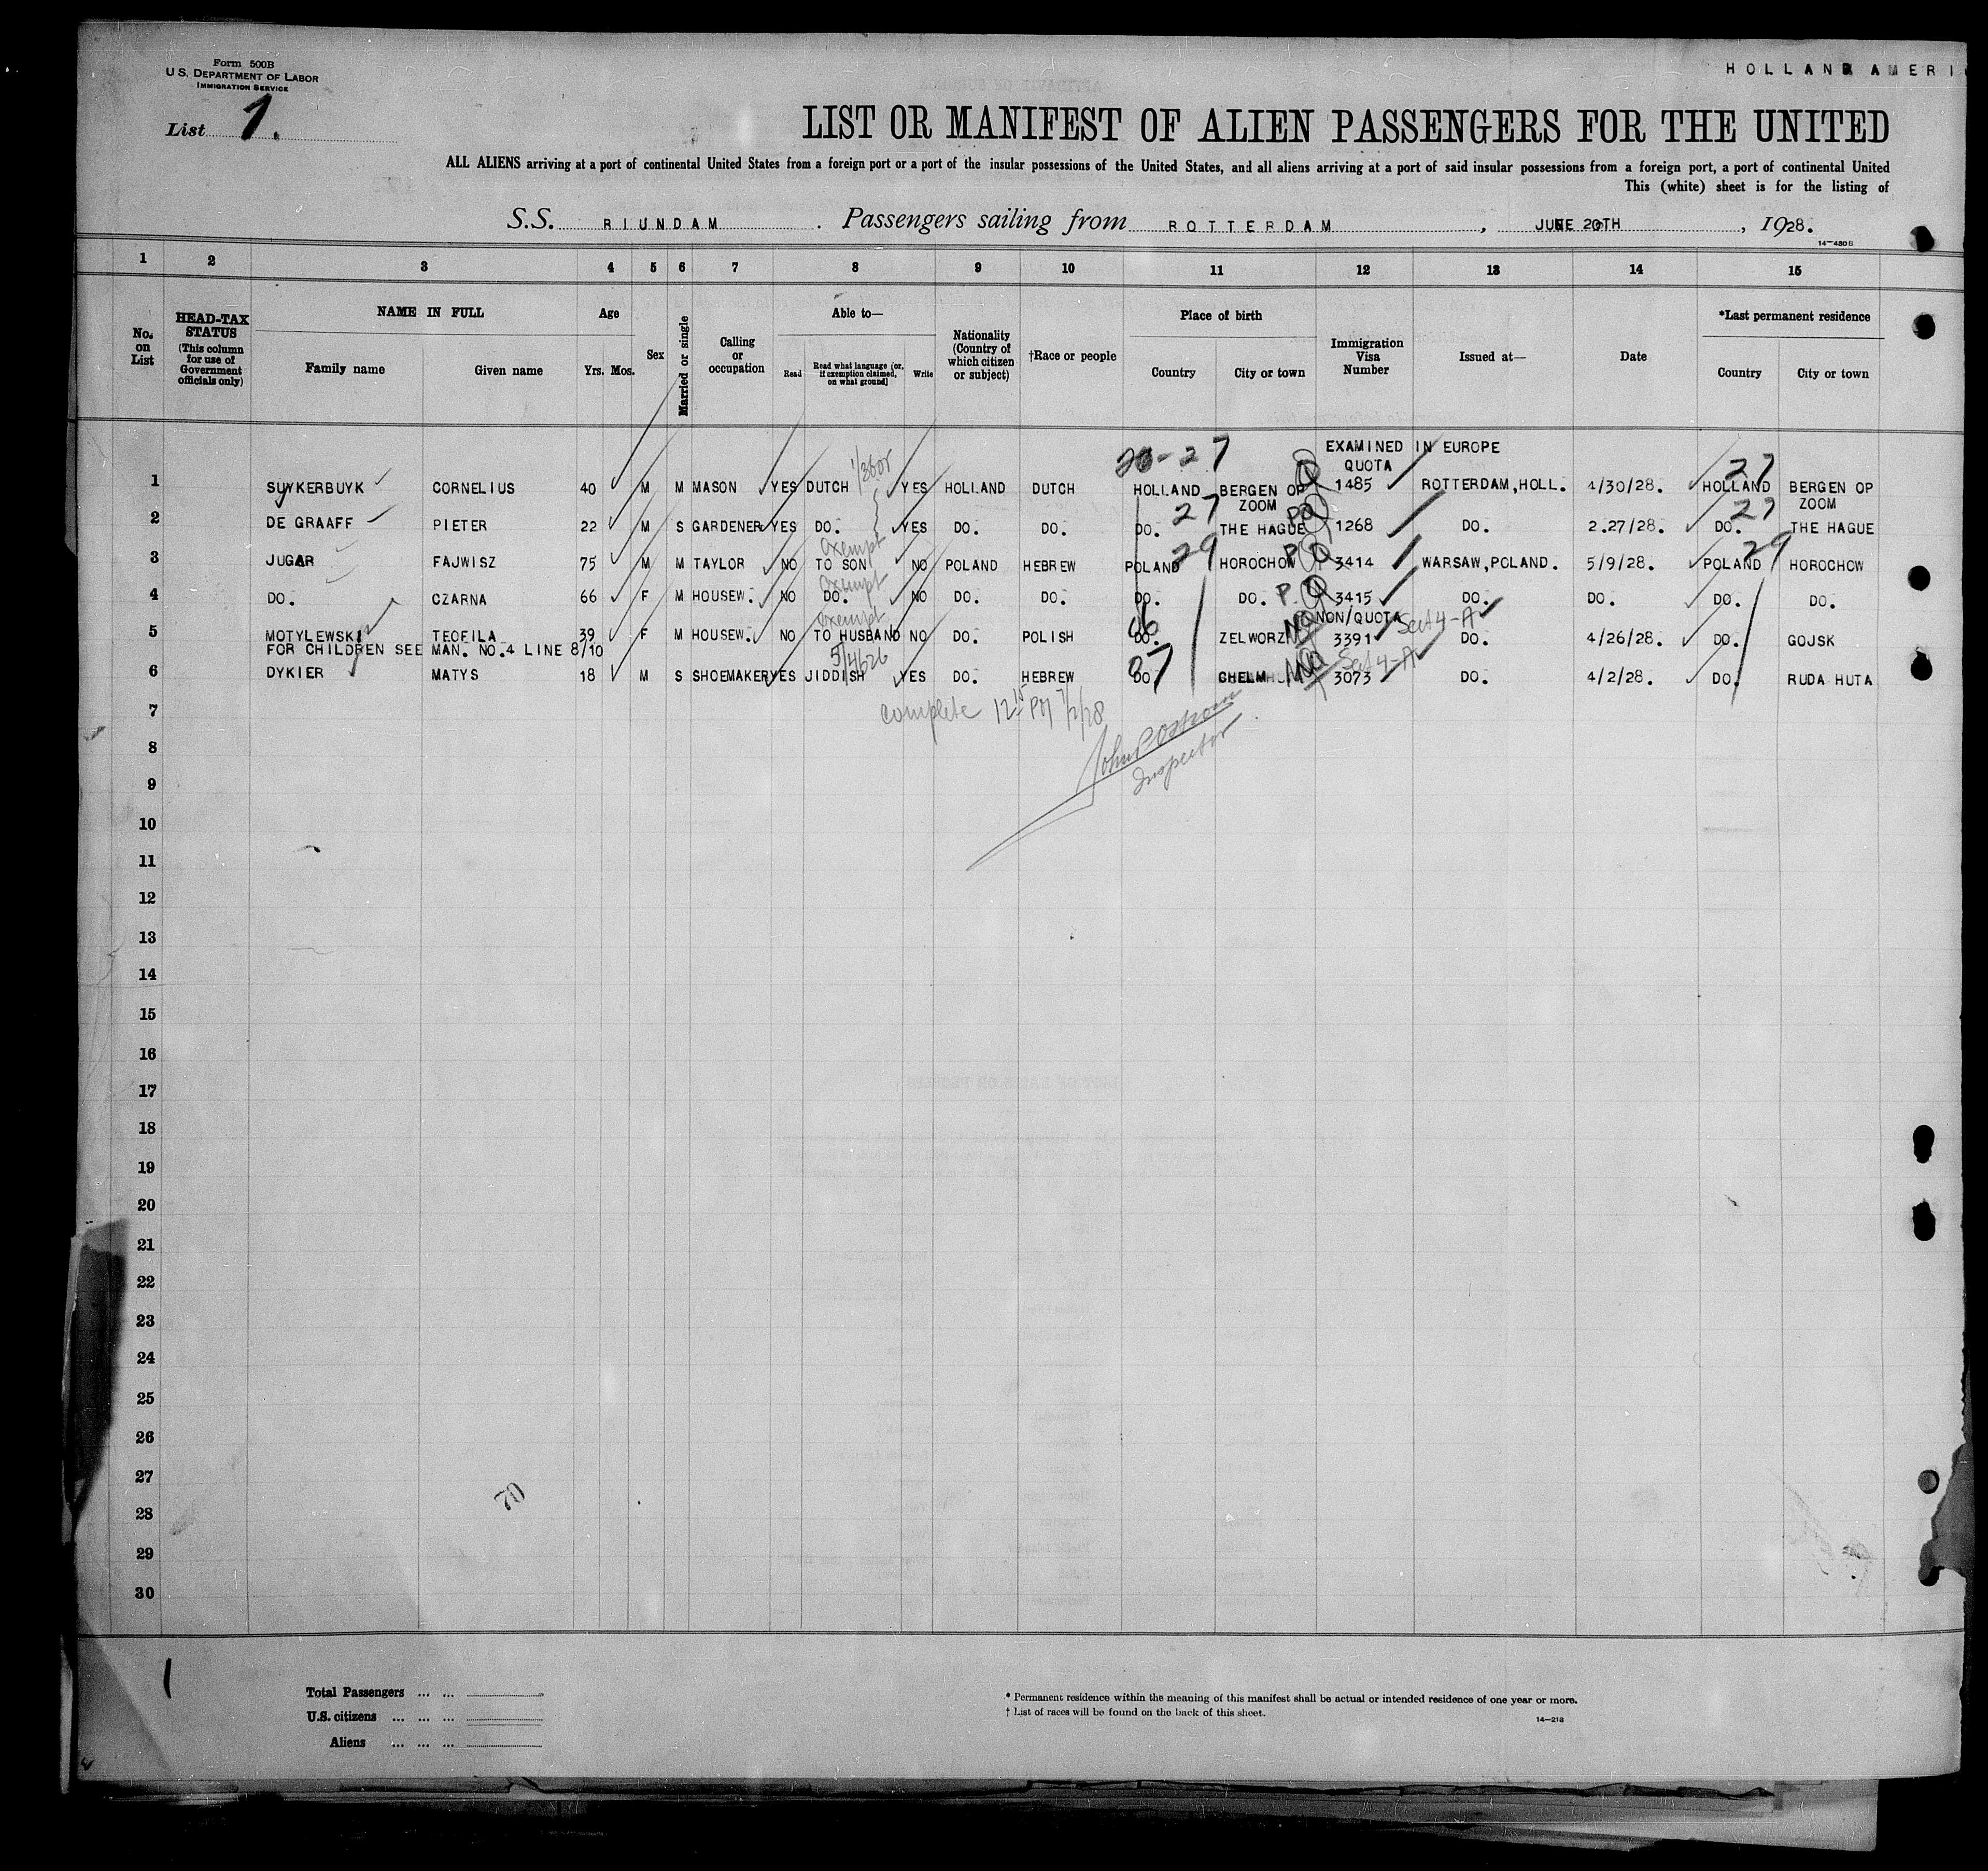 Form 500B
U.S. DEPARTMENT OF LABOR
IMMIGRATION SERVICE
HOLLAND AMERI
List 1.
LIST OR MANIFEST OF ALIEN PASSENGERS FOR THE UNITED
ALL ALIENS arriving at a port of continental United States from a foreign port or a port of the insular possessions of the United States, and all aliens arriving at a port of said insular possessions from a foreign port, a port of continental United
This (white) sheet is for the listing of
S.S. RIUNDAM . Passengers sailing from ROTTERDAM , JUNE 20TH , 1928.
14-480B
1 2 3 4 5 6 7 8 9 10 11 12 13 14 15
No. on List
HEAD-TAX STATUS (This column for use of Government officials only)
NAME IN FULL
Family name Given name
Age
Yrs. Mos.
Sex
Married or single
Calling or occupation
Able to—
Read Read what language (or, if exemption claimed, on what ground) Write
Nationality (Country of which citizen or subject)
†Race or people
Place of birth
Country City or town
Immigration Visa Number
Issued at—
Date
*Last permanent residence
Country City or town
EXAMINED IN EUROPE
QUOTA
27 27
1 SUYKERBUYK CORNELIUS 40 M M MASON YES DUTCH YES HOLLAND DUTCH HOLLAND BERGEN OP ZOOM 1485 ROTTERDAM, HOLL. 4/30/28. HOLLAND BERGEN OP ZOOM
27 27
2 DE GRAAFF PIETER 22 M S GARDENER YES DO. YES DO. DO. DO. THE HAGUE 1268 DO. 2.27/28. DO. THE HAGUE
exempt 29 29
3 JUGAR FAJWISZ 75 M M TAYLOR NO TO SON NO POLAND HEBREW POLAND HOROCHOW 3414 WARSAW, POLAND. 5/9/28. POLAND HOROCHOW
exempt
4 DO. CZARNA 66 F M HOUSEW. NO DO. NO DO. DO. DO. DO. 3415 DO. DO. DO. DO.
exempt NON/QUOTA Sect 4-A
5 MOTYLEWSKI TEOFILA 39 F M HOUSEW. NO TO HUSBAND NO DO. POLISH DO. ZELWORZN 3391 DO. 4/26/28. DO. GOJSK
FOR CHILDREN SEE MAN. NO.4 LINE 8/10
Sect 4-A
6 DYKIER MATYS 18 M S SHOEMAKER YES JIDDISH YES DO. HEBREW DO. CHELM 3073 DO. 4/2/28. DO. RUDA HUTA
complete 12 15 PM 7/2/28
Inspector
7
8
9
10
11
12
13
14
15
16
17
18
19
20
21
22
23
24
25
26
27
28
29
30
70
1
Total Passengers ... ...
U.S. citizens ... ... ...
Aliens ... ... ...
* Permanent residence within the meaning of this manifest shall be actual or intended residence of one year or more.
† List of races will be found on the back of this sheet.
14-218